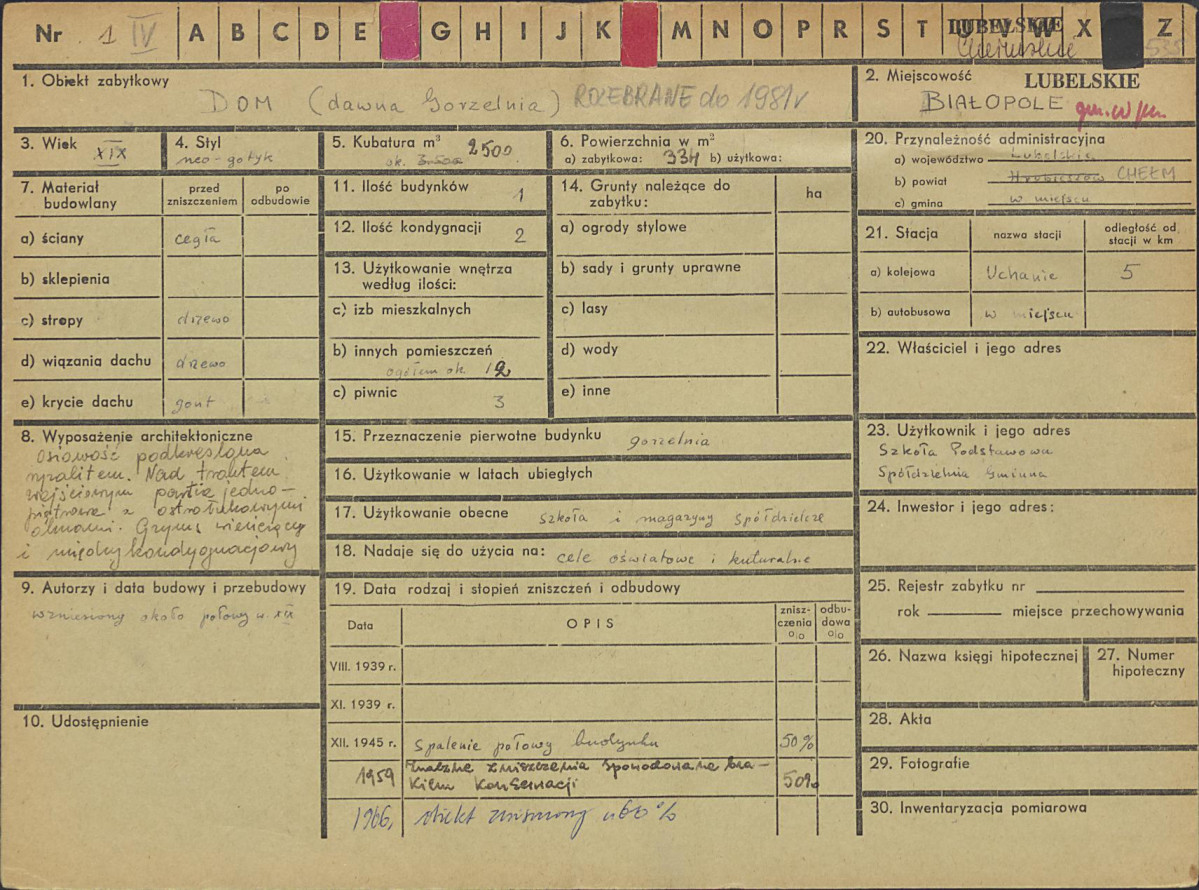 Nr 1 IV A B C D E G H I J K M N O P R S T U V W X Z
LUBELSKIE
535
1. Obiekt zabytkowy
DOM (dawna Gorzelnia) ROZEBRANE do 1981 r
2. Miejscowość LUBELSKIE
BIAŁOPOLE gm. w/m.
3. Wiek XIX
4. Styl
neo-gotyk
5. Kubatura m³ 2500
ok.
6. Powierzchnia w m²
a) zabytkowa: 334 b) użytkowa:
20. Przynależność administracyjna
a) województwo Lubelskie
b) powiat Hrubieszów CHEŁM
c) gmina w miejscu
7. Materiał budowlany
przed zniszczeniem
po odbudowie
a) ściany cegła
b) sklepienia
c) stropy drzewo
d) wiązania dachu drzewo
e) krycie dachu gont
11. Ilość budynków 1
12. Ilość kondygnacji 2
13. Użytkowanie wnętrza
według ilości:
c) izb mieszkalnych
b) innych pomieszczeń
ogółem ok. 12
c) piwnic 3
14. Grunty należące do
zabytku:
ha
a) ogrody stylowe
b) sady i grunty uprawne
c) lasy
d) wody
e) inne
21. Stacja
nazwa stacji
odległość od
stacji w km
a) kolejowa Uchanie 5
b) autobusowa w miejscu
22. Właściciel i jego adres
8. Wyposażenie architektoniczne
Osiowość podkreślona
ryzalitem. Nad traktem
wejściowym partia jedno-
piętrowa z ostrołukowymi
oknami. Gzyms wieńczący
i międzykondygnacjowy
15. Przeznaczenie pierwotne budynku gorzelnia
16. Użytkowanie w latach ubiegłych
17. Użytkowanie obecne szkoła i magazyny spółdzielcze
18. Nadaje się do użycia na: cele oświatowe i kuturalne
23. Użytkownik i jego adres
Szkoła Podstawowa
Spółdzielnia Gminna
24. Inwestor i jego adres:
9. Autorzy i data budowy i przebudowy
wzniesiony około połowy w. XIX
10. Udostępnienie
19. Data rodzaj i stopień zniszczeń i odbudowy
Data
OPIS
znisz-
czenia
%
odbu-
dowa
%
VIII. 1939 r.
XI. 1939 r.
XII. 1945 r. Spalenie połowy budynku 50%
1959 Znaczne zniszczenia spowodowane bra-
kiem konserwacji 50%
1966, obiekt zniszczony w 60%
25. Rejestr zabytku nr
rok miejsce przechowywania
26. Nazwa księgi hipotecznej
27. Numer
hipoteczny
28. Akta
29. Fotografie
30. Inwentaryzacja pomiarowa